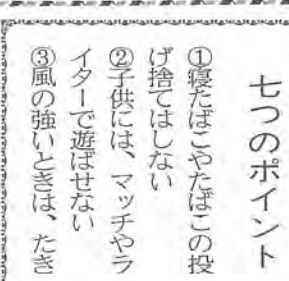 七つのポイント
①寝たばこやたばこの投
げ捨てはしない
②子供には、マッチやラ
イターで遊ばせない
③風の強いときは、たき